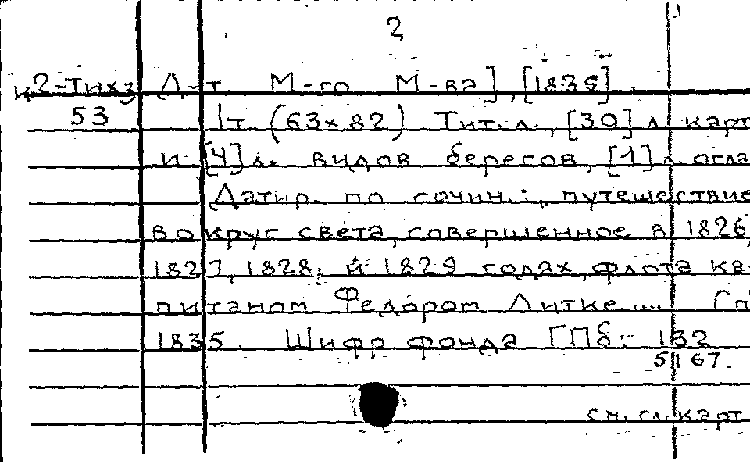 2
к2-Тихз Д-т М-го М-ва], [1835].
53 1т. (63×82) Тит. л., [30] л карт
и [4] л. видов берегов, [1] л огла
Датир. по сочин.: „путешествие
вокруг света, совершенное в 1826,
1827, 1828, и 1829 годах, флота ка-
питаном Федором Литке ... Сп
1835. Шифр фонда ГПБ: 132
5/167.
см. сл. карт